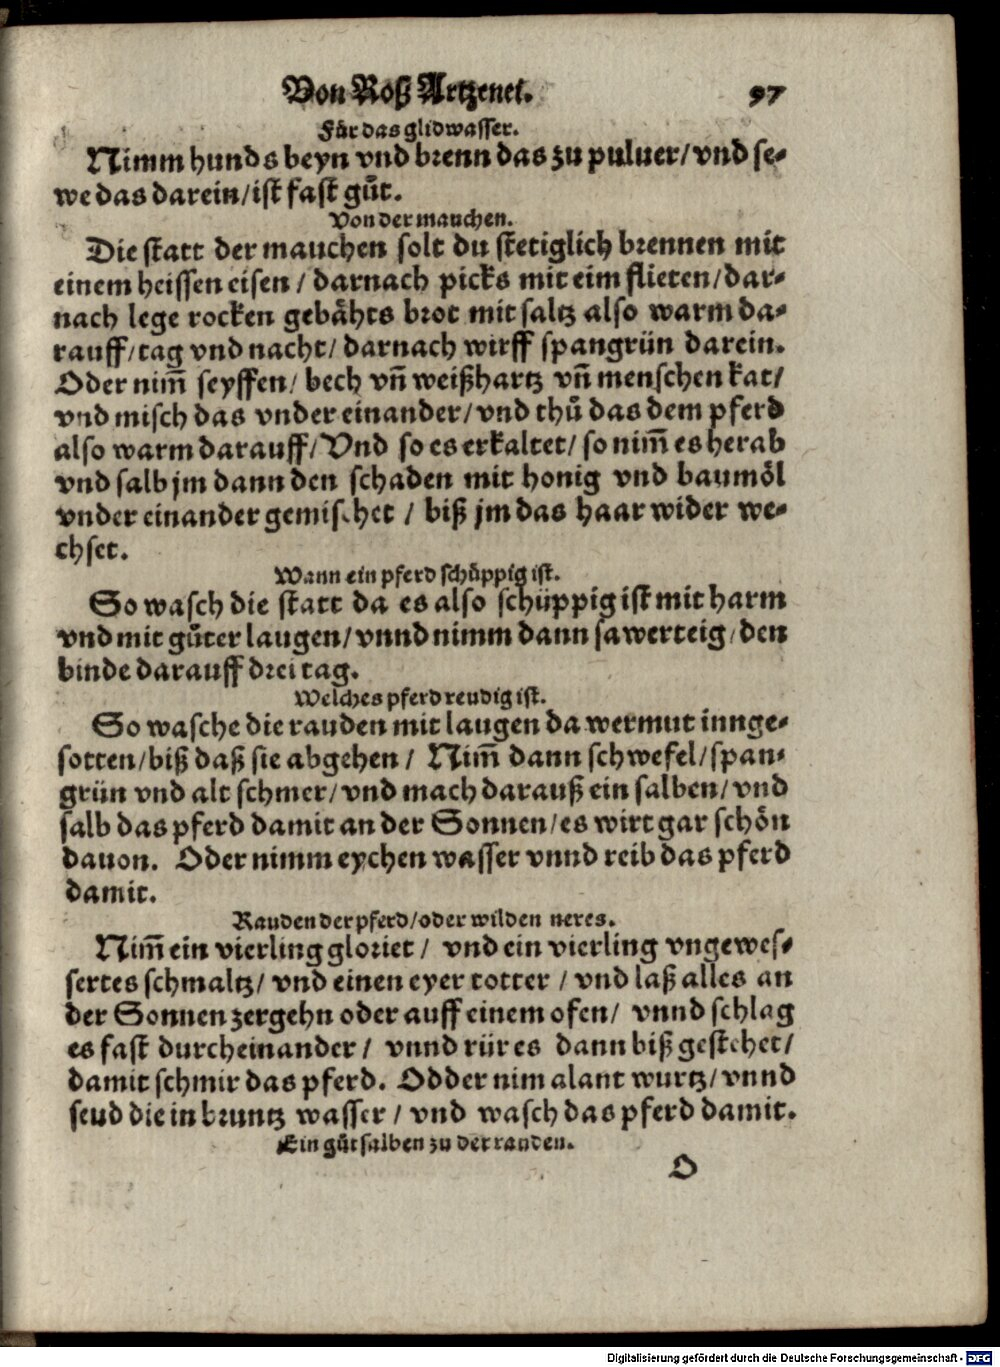 Von Roß Artzenei. 97
Für das glidwasser.
Nimm hunds beyn vnd brenn das zu puluer/ vnd se-
we das darein/ ist fast gůt.
Von der mauchen.
Die statt der mauchen solt du stetiglich brennen mit
einem heissen eisen / darnach picks mit eim flieten/ dar-
nach lege rocken gebåhts brot mit saltz also warm da-
rauff/ tag vnd nacht/ darnach wirff spangrün darein.
Oder nim̃ seyffen/ bech vñ weißhartz vñ menschen kat/
vnd misch das vnder einander/ vnd thů das dem pferd
also warm darauff/ Vnd so es erkaltet/ so nim̃ es herab
vnd salb jm dann den schaden mit honig vnd baumöl
vnder einander gemischet / biß jm das haar wider we-
chset.
Wann ein pferd schüppig ist.
So wasch die statt da es also schüppig ist mit harm
vnd mit gůter laugen/ vnnd nimm dann sawerteig/ den
binde darauff drei tag.
Welches pferd reudig ist.
So wasche die rauden mit laugen da wermut innge-
sotten/ biß daß sie abgehen / Nim̃ dann schwefel/ span-
grün vnd alt schmer/ vnd mach darauß ein salben/ vnd
salb das pferd damit an der Sonnen/ es wirt gar schön
dauon. Oder nimm eychen wasser vnnd reib das pferd
damit.
Rauden der pferd/ oder wilden neres.
Nim̃ ein vierling gloriet / vnd ein vierling vngewes-
sertes schmaltz/ vnd einen eyer totter / vnd laß alles an
der Sonnen zergehn oder auff einem ofen/ vnnd schlag
es fast durcheinander / vnnd rür es dann biß gestehet/
damit schmir das pferd. Odder nim alant wurtz/ vnnd
seud die in bruntz wasser / vnd wasch das pferd damit.
Ein gůt salben zu der rauden.
O
Digitalisierung gefördert durch die Deutsche Forschungsgemeinschaft - DFG